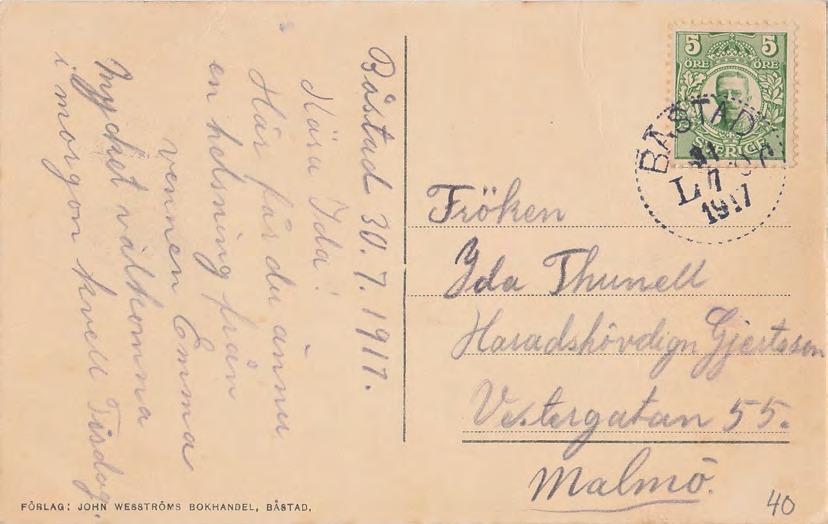 Båstad 30.7.1917.
Kära Ida!
Här får du ännu
en helsning från
vennen Emma
Mycket välkomna
i morgon kvell Tisdag.
FÖRLAG: JOHN WESSTRÖMS BOKHANDEL, BÅSTAD.
5 5
ÖRE ÖRE
SVERIGE
BÅSTAD
31
L 7
1917
Fröken
Ida Thunell
Haradshövdign Gjertsson
Vestergatan 55.
Malmö.
40